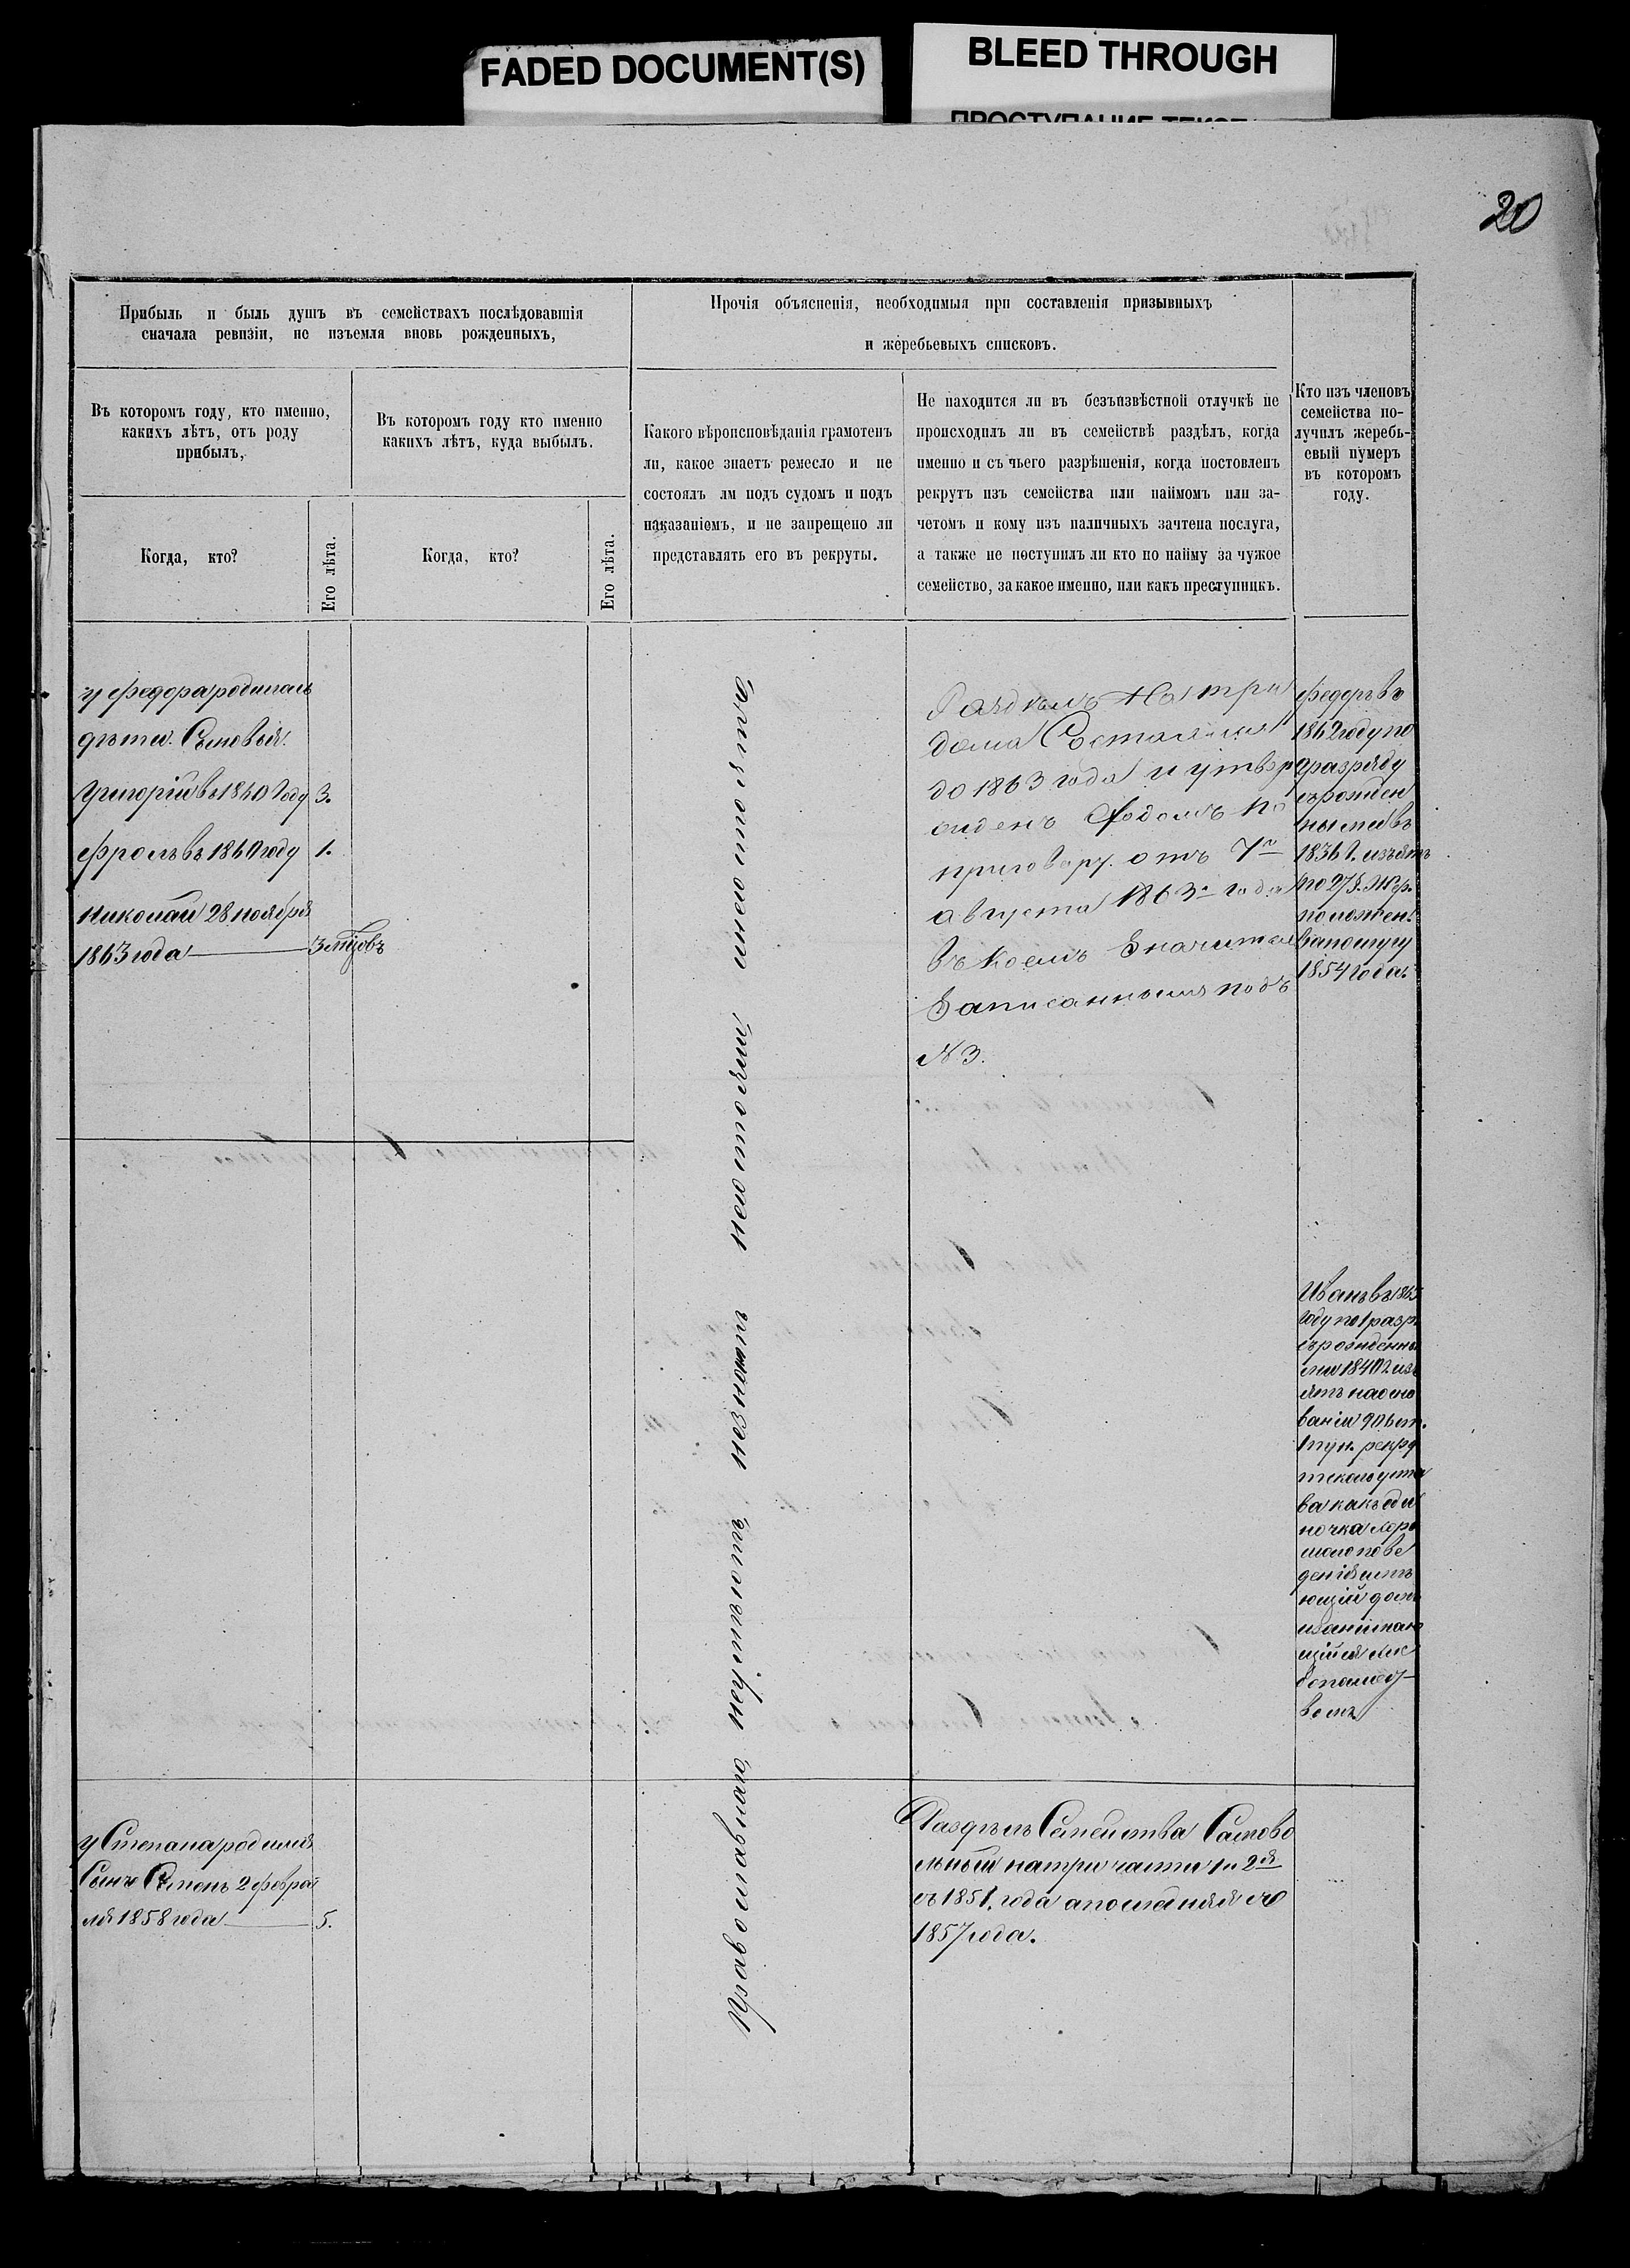 FADED DOCUMENT(S)
BLEED THROUGH
20
Прибыль и быль душъ въ семействахъ послѣдовавшія
сначала ревизіи, не изъемля вновь рожденныхъ,
Прочія объясненія, необходимыя при составленія призывныхъ
и жеребьевыхъ списковъ.
Въ которомъ году, кто именно,
какихъ лѣтъ, отъ роду
прибылъ,
Въ которомъ году кто именно
какихъ лѣтъ, куда выбылъ.
Когда, кто?
Его лѣта.
Когда, кто?
Его лѣта.
Какого вѣроисповѣданія грамотенъ
ли, какое знаетъ ремесло и не
состоялъ лм подъ судомъ и подъ
наказаніемъ, и не запрещено ли
представлять его въ рекруты.
Не находится ли въ безъизвѣстной отлучкѣ не
происходилъ ли въ семействѣ раздѣлъ, когда
именно и съ чьего разрѣшенія, когда поставленъ
рекрутъ изъ семейства или наймомъ или за-
четомъ и кому изъ наличныхъ зачтена послуга,
а также не поступилъ ли кто по найму за чужое
семейство, за какое именно, или какъ преступникъ.
Кто изъ членовъ
семейства по-
лучилъ жеребь-
евый нумеръ
въ которомъ
году.
у федора родились
дѣти. Сыновья.
Григорій въ 1860 году 3.
фролъ въ 1860 году 1.
николай 28 ноября
1863 года
Православнаго, неумѣютъ, незнаютъ
несостояли
Раздѣлъ на три
дома Состоялся
до 1863 года и утвер
жденъ Сходомъ по
приговору отъ 7го
августа 1863го года
въ коемъ Значится
Записанныя подъ
№3.
федоръ въ
1862 году по
разряду
съ рожден
ными въ
1836 г. изъятъ
по 27§. Жер.
положен.
1854 года.
Иванъ въ 1863
году по 1 разр.
съ рожденны
ми 1840 г. изъ
ятъ на осно
ваніи 906 ст.
1 пун. рекру
тскаго уста
ва какъ оди
ночка хоро
шаго пове
денія имѣ
ющій домъ
и занимаю
щійся хлѣ
бопашест
вомъ
у Степана родился
Сынъ Семенъ 2 февра
ля 1858 года 5.
Раздѣлъ Семейства Самово
льный на три части 1и 2я
съ 1851. года а последняя съ
1857 года.